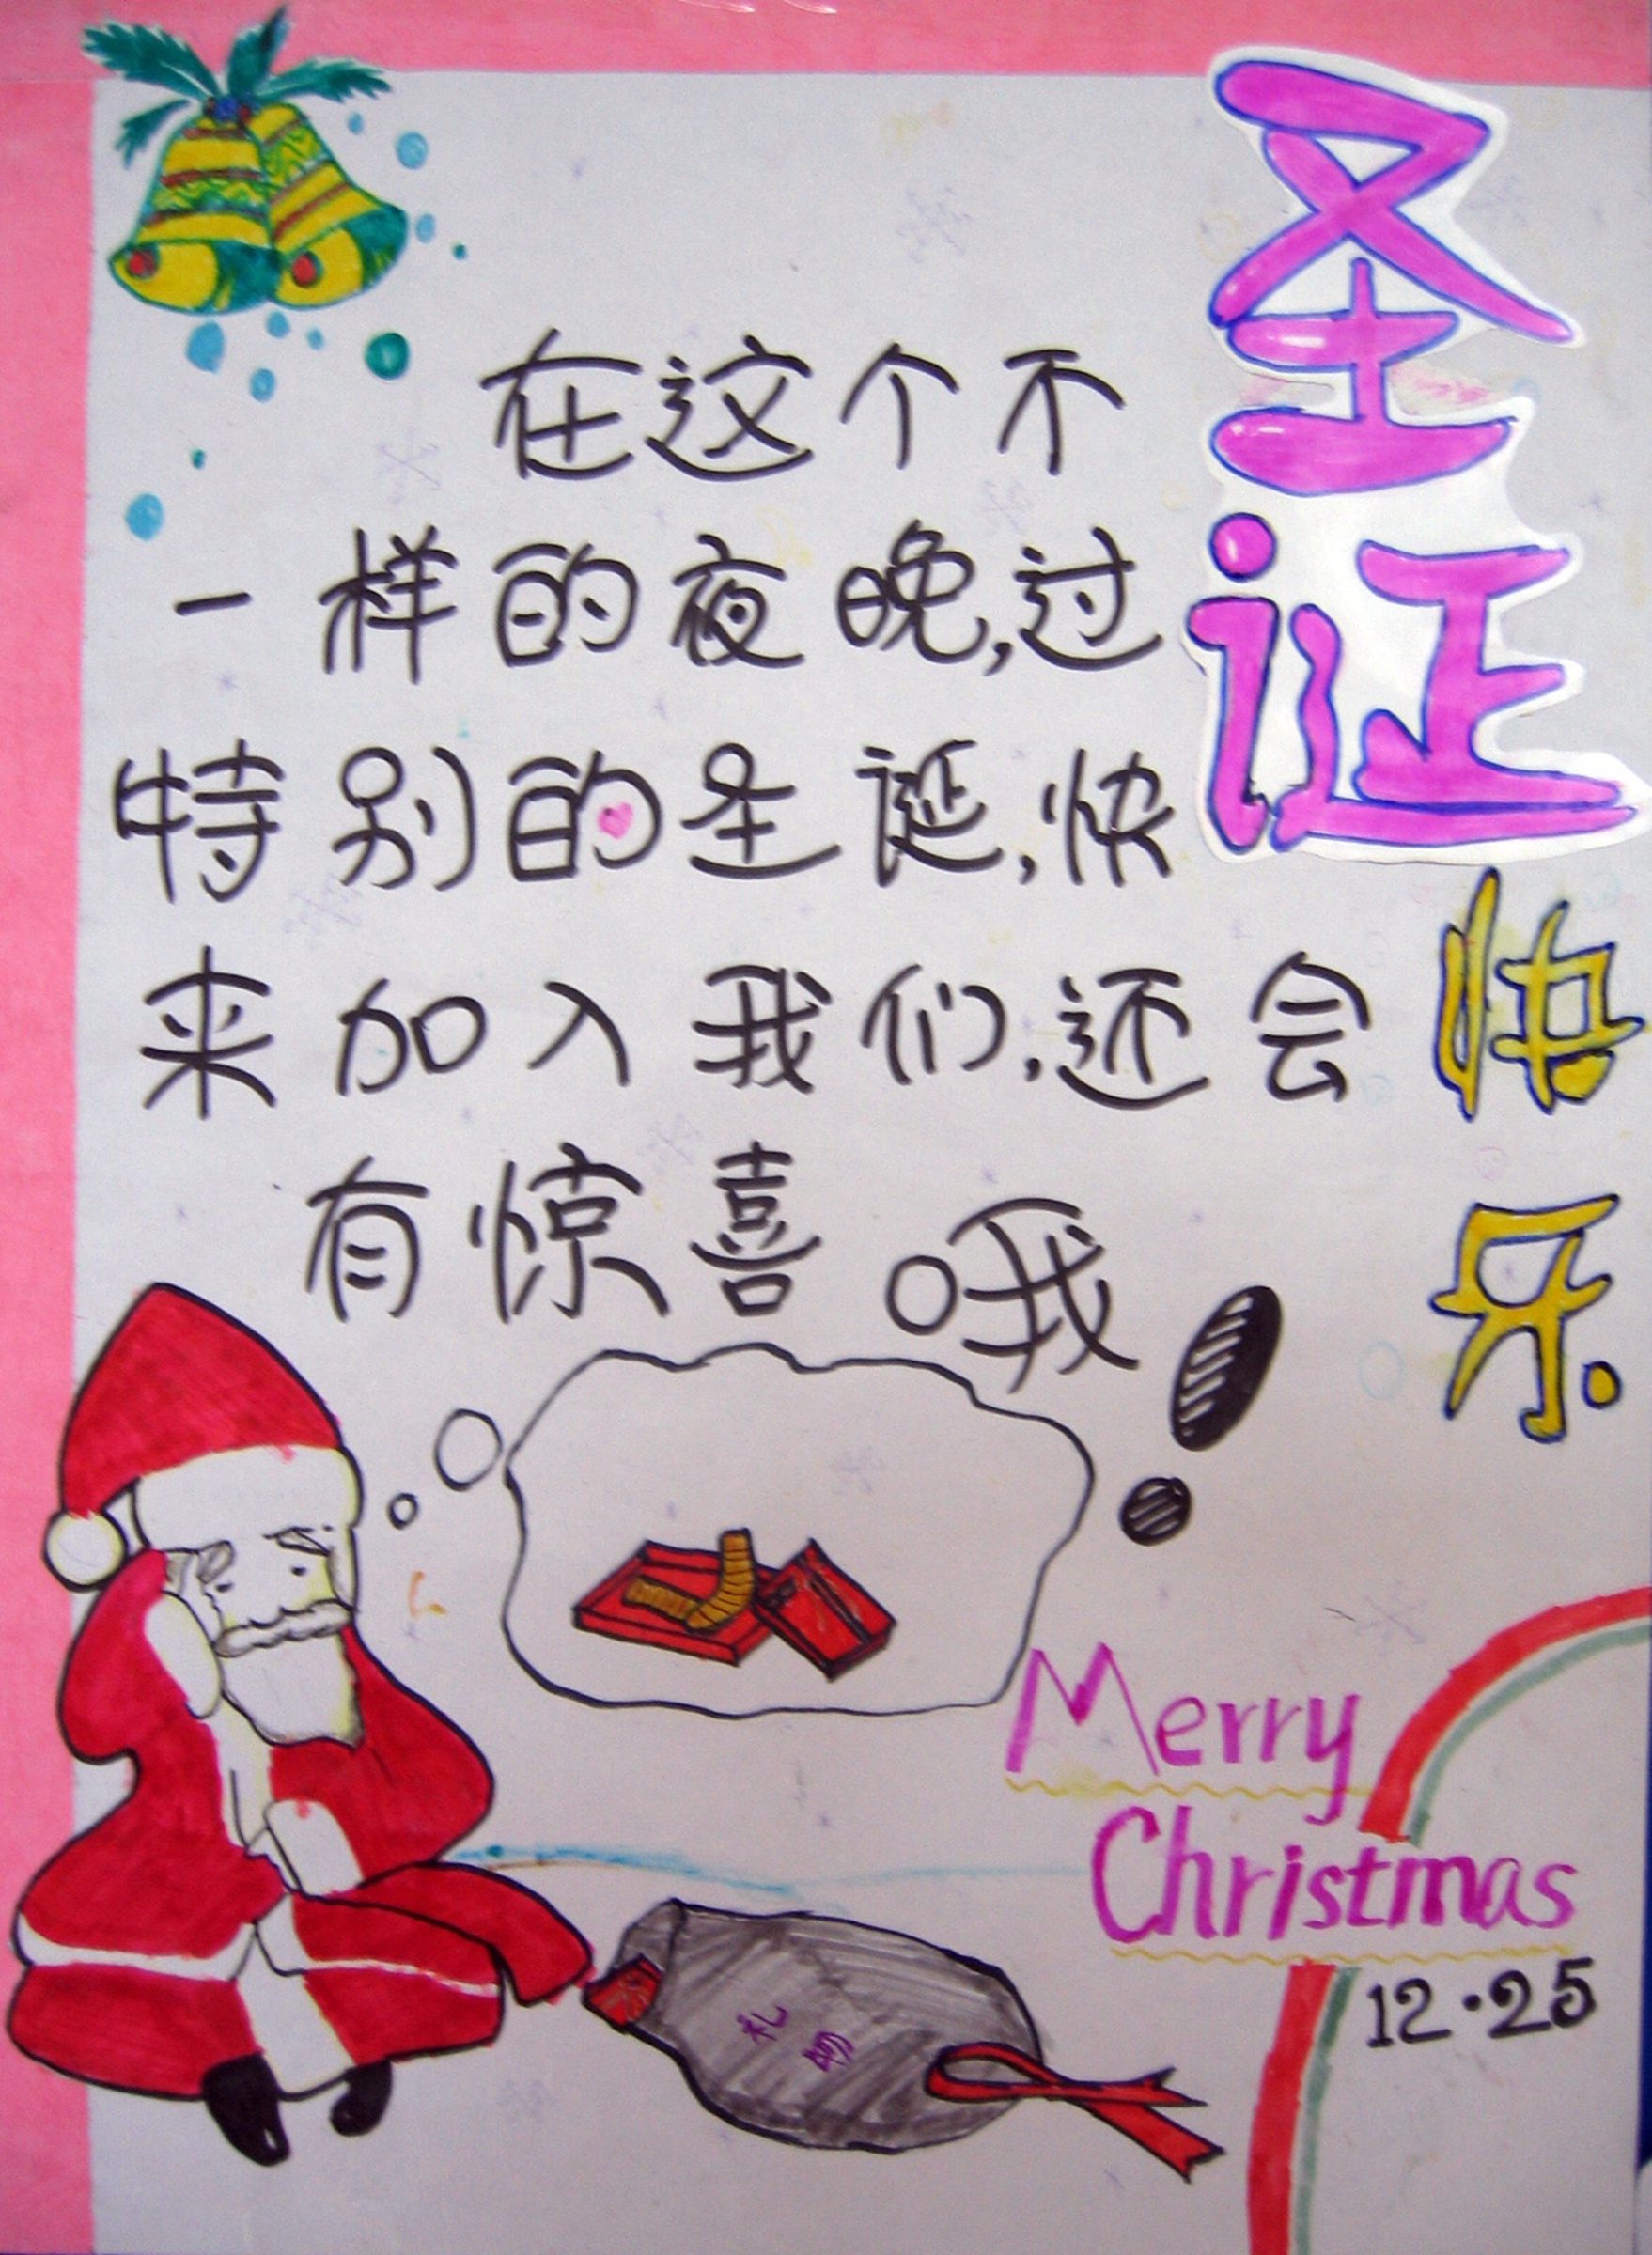 圣诞
快乐
在这个不
一样的夜晚,过
特别的圣诞,快
来加入我们,还会
有惊喜哦!
Merry
Christmas
12·25
礼物